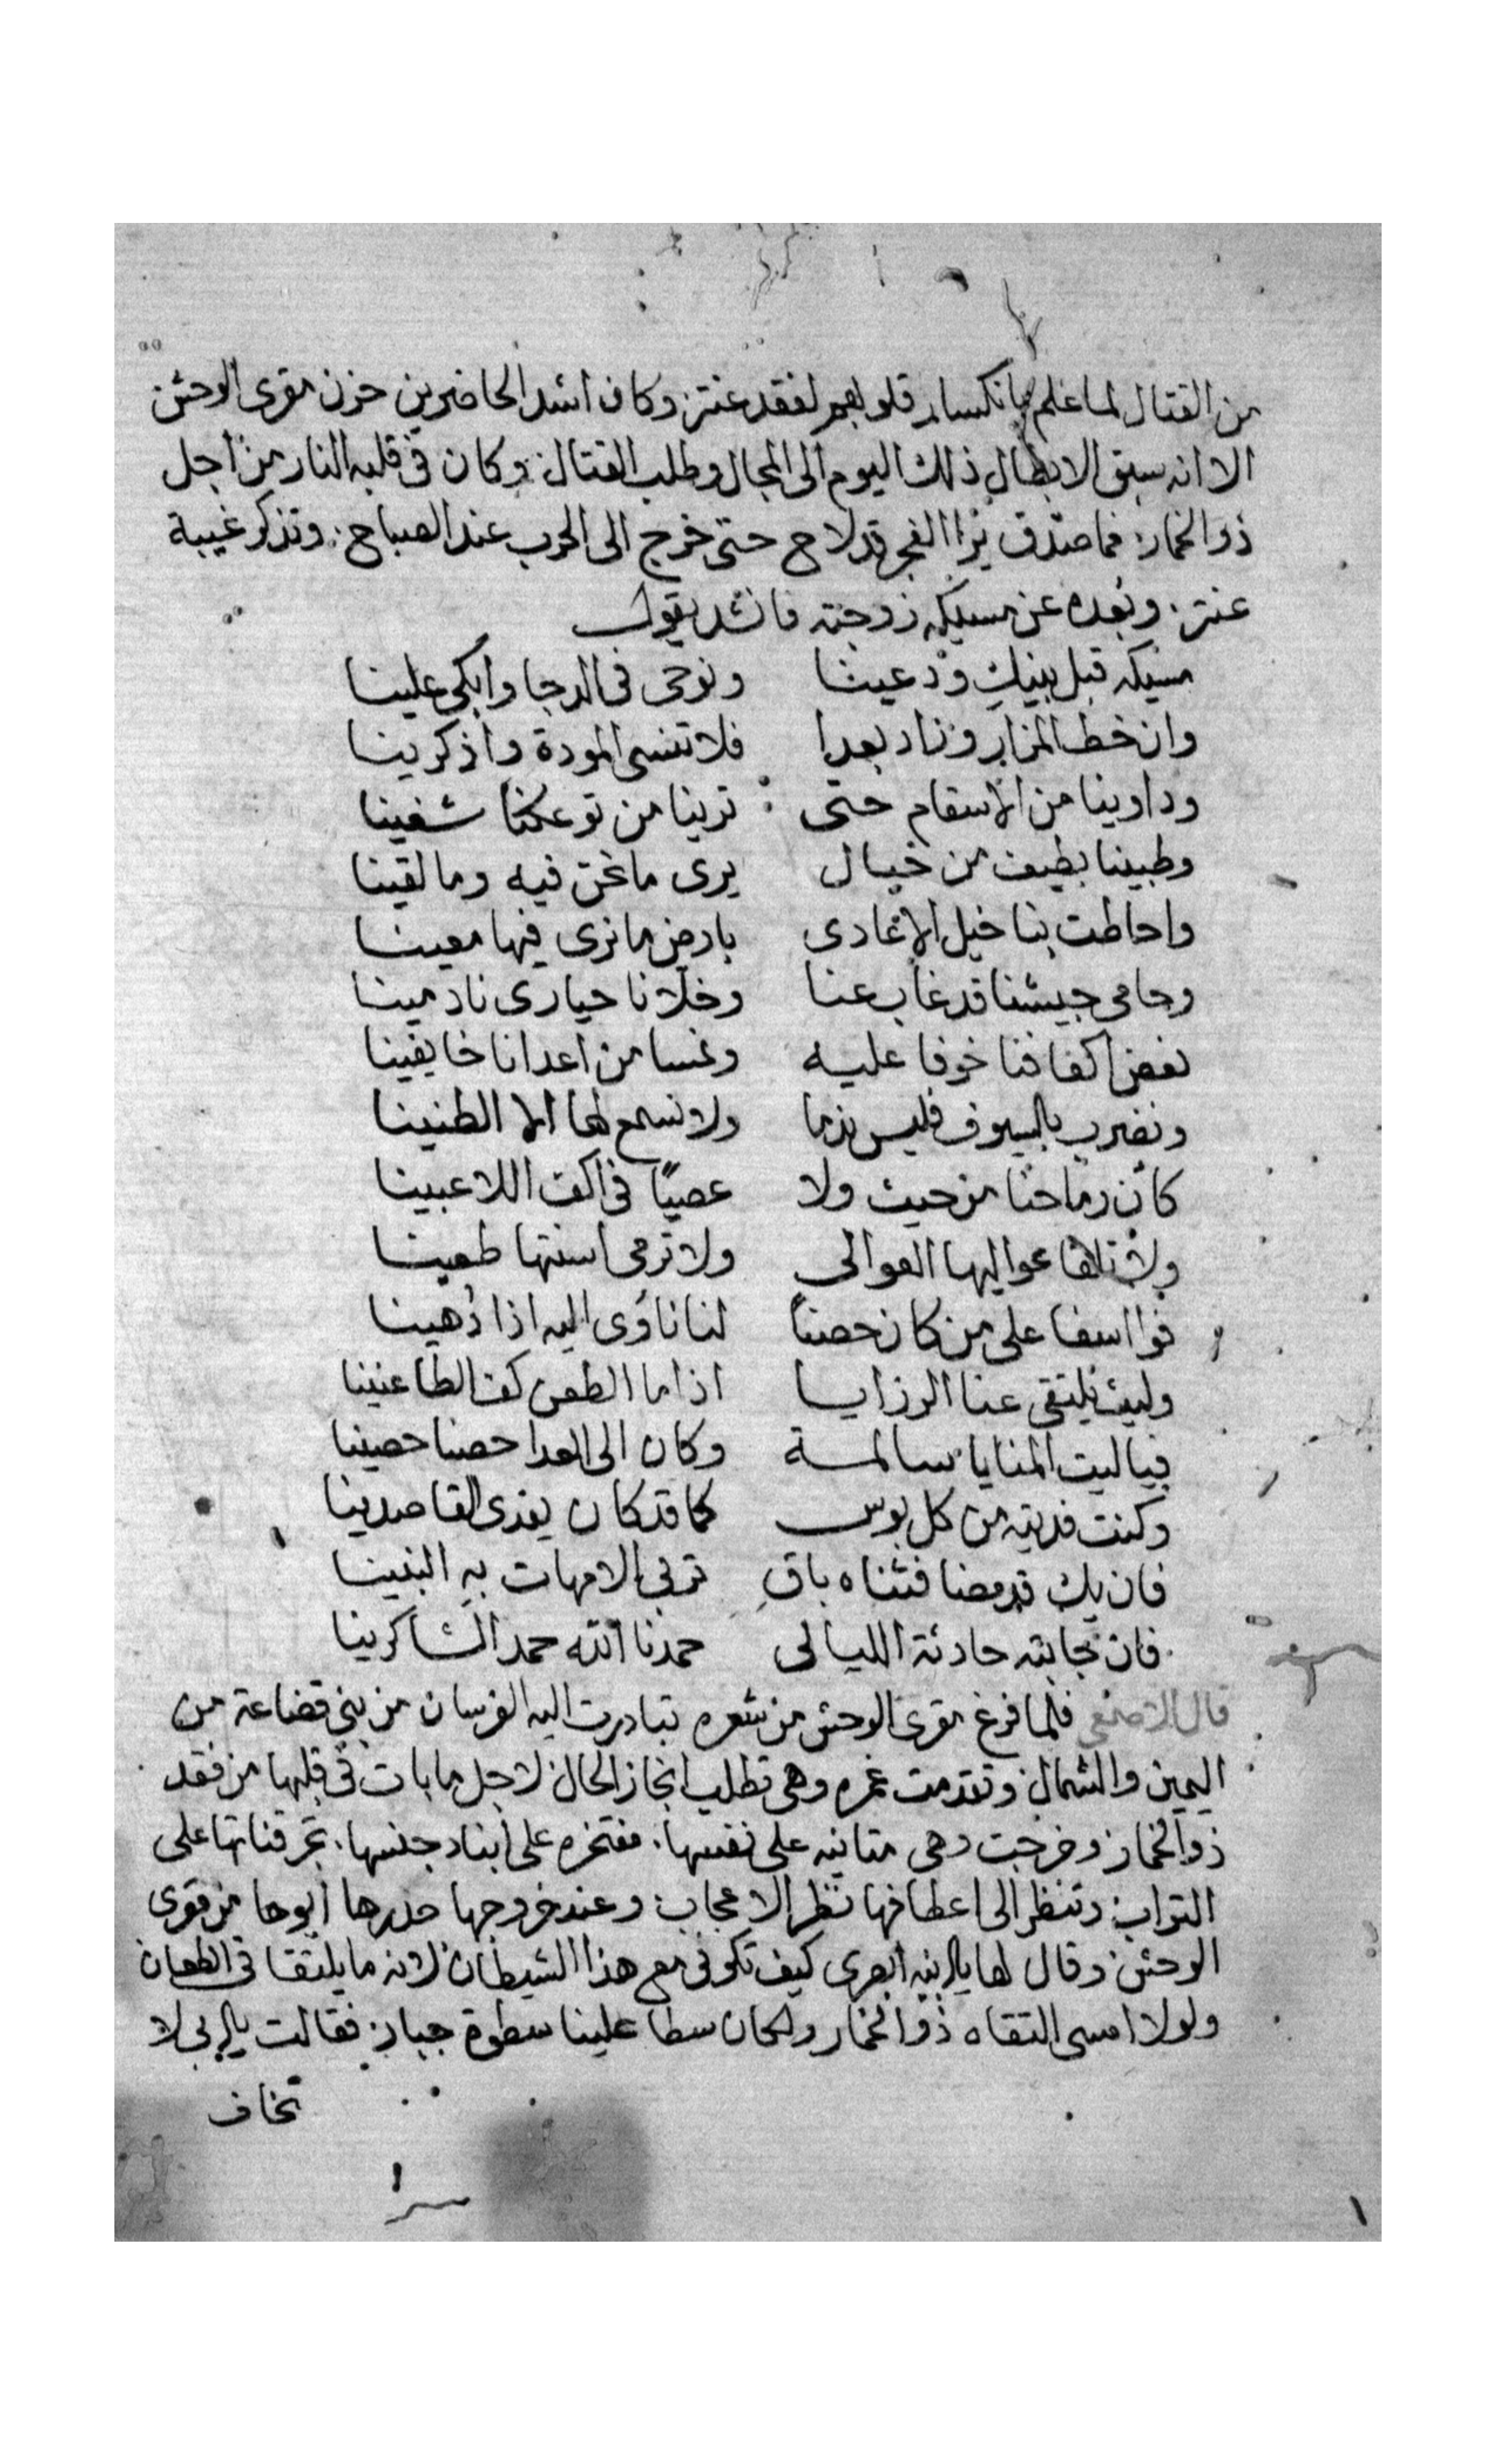 من القتال لما علم بانكسار قلوبهم لفقد عنتر وكان اشد الحاضرين حزن مقرى الوحش
الا انه سبق الابطال ذلك اليوم الى المجال وطلب القتال وكان فى قلبه النار من اجل
ذو الخمار فما صدق يرا الفجر قد لاح حتى خرج الى الحرب عند الصباح وتذكر غيبة
عنتر وبعده عن مسيكه زوجته فانشد يقول
مسيكه قبل بينكِ ودعينا ونوحى فى الدجا وابكى علينا
وان خط المزار وزاد بعدا فلا تنسى المودة واذكرينا
وداوينا من الاسقام حتى ترينا من توعكنا شفينا
وطبينا بطيف من خيال يرى ما نحن فيه وما لقينا
واحاطت بنا خيل الاعادى بارض ما نرى فيها معينا
وحامى جيشنا قد غاب عنا وخلّانا حيارى نادمينا
نعض اكفافنا خوفا عليه ونمسا من اعدانا خايفينا
ونضرب بالسيوف فليس ندما ولا نسمع لها الا الطنينا
كأن رماحنا من حيث ولا عصيًا فى اكف اللاعبينا
ولا تلقا عواليها العوالى ولا ترمى اسنتها طعينا
فوا اسفا على من كان حصنًا لنا ناوى اليه اذا دُهينا
وليث يلتقى عنا الرزايا اذا ما الطعن كف الطاعنينا
فيا ليت المنايا سالمة وكان الى العدا حصنا حصينا
وكنت فديته من كل بوس كما قد كان يفدى القاصدينا
فان يك قد مضا فثناه باقٍ تربى الامهات بهِ البنينا
فان نجاته حادثة الليالى حمدنا الله حمد الشاكرينا
قال الاصمعى فلما فرغ مقرى الوحش من شعره تبادرت اليه الفرسان من بنى قضاعة من
اليمين والشمال وتقدمت غمره وهى تطلب انجاز الحال لاجل ما بات فى قلبها من فقد
ذو الخمار وخرجت وهى متانيه على نفسها مفتخره على ابناء جنسها تجر قناتها على
التراب وتنظر الى اعطافها نظر الاعجاب وعند خروجها حدرها ابوها من مقرى
الوحش وقال لها يا ابنيه ابصرى كيف تكونى مع هذا الشيطان لانه ما يلتقا فى الطعان
ولولا امسى التقاه ذو الخمار ولكان سطا علينا سطوة جبار فقالت يا ابى لا
تخاف